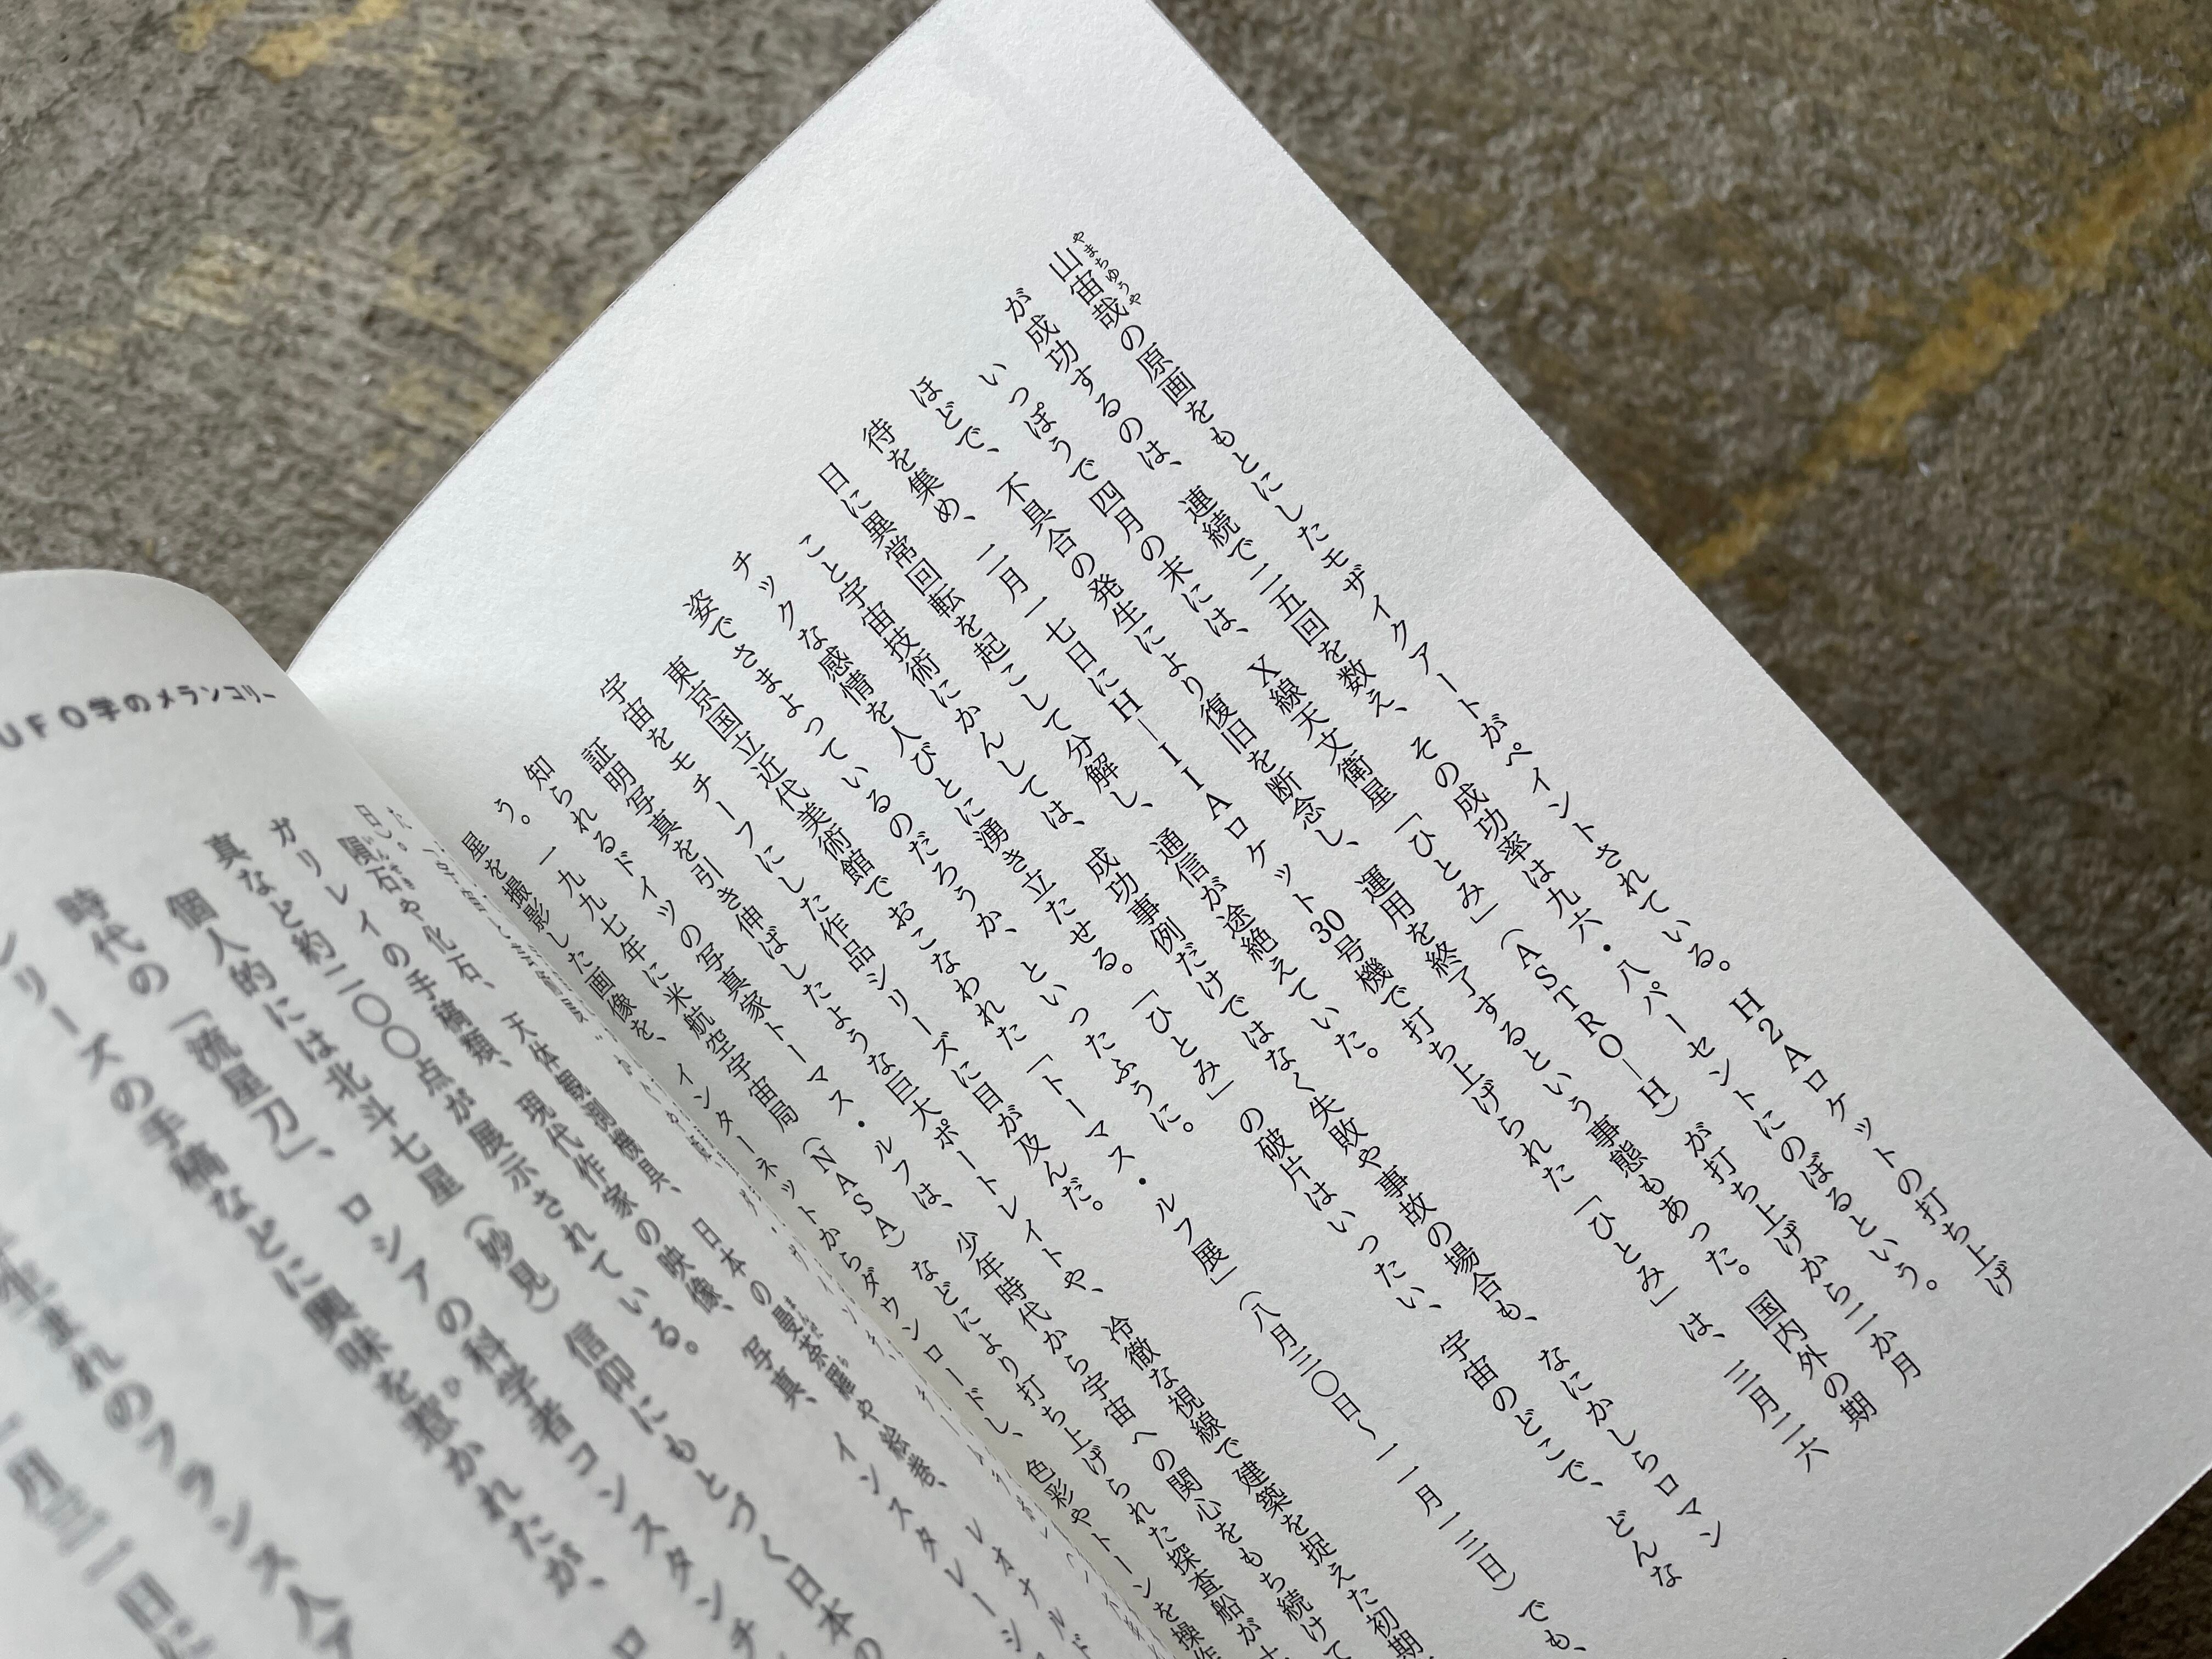 山宙哉の原画をもとにしたモザイクアートがペイントされている。H2Aロケットの打ち上げ
が成功するのは、連続で二五回を数え、その成功率は九六・八パーセントにのぼるという。
いっぽうで四月の末には、X線天文衛星「ひとみ」(ASTRO―H)が打ち上げから二か月
ほどで、不具合の発生により復旧を断念し、運用を終了するという事態もあった。国内外の期
待を集め、二月一七日にH―IIAロケット30号機で打ち上げられた「ひとみ」は、三月二六
日に異常回転を起こして分解し、通信が途絶えていた。
こと宇宙技術にかんしては、成功事例だけではなく失敗や事故の場合も、なにかしらロマン
チックな感情を人びとに湧き立たせる。「ひとみ」の破片はいったい、宇宙のどこで、どんな
姿でさまよっているのだろうか、といったふうに。
東京国立近代美術館でおこなわれた「トーマス・ルフ展」(八月三〇日~一一月一三日)でも、
宇宙をモチーフにした作品シリーズに目が及んだ。
証明写真を引き伸ばしたような巨大ポートレイトや、冷徹な視線で建築を捉えた初期
知られるドイツの写真家トーマス・ルフは、少年時代から宇宙への関心をもち続けて
う。一九九七年に米航空宇宙局(NASA)などにより打ち上げられた探査船が
星を撮影した画像を、インターネットからダウンロードし、色彩やトーンを操作
UFO学のメランコリー
隕石や化石、天体観測機具、日本の曼荼羅や絵巻、レオナルド
ガリレイの手稿類、現代作家の映像、写真、インスタレーシ
真など約二〇〇点が展示されている。
個人的には北斗七星(妙見)信仰にもとづく日本の
時代の「流星刀」、ロシアの科学者コンスタンチ
リーズの手稿などに興味を惹かれたが、
生まれのフランス人